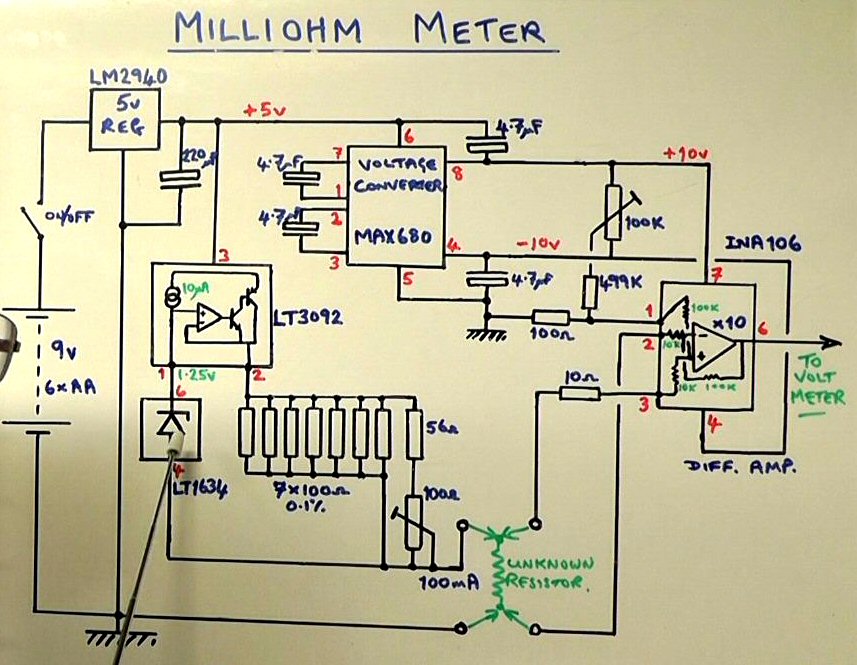 MILLIOHM METER
LM2940
5V
REG
+5V
220µF
ON/OFF
9V
6xAA
4.7µF
4.7µF
7
1
2
3
6
8
4
5
VOLTAGE
CONVERTER
MAX680
4.7µF
+10V
-10V
4.7µF
100K
499K
100Ω
INA106
7
1
2
3
6
4
100K
10K
10K
100K
x10
-
+
DIFF. AMP.
TO
VOLT
METER
3
10µA
+
-
LT3092
1
1.25V
2
6
4
LT1634
7x100Ω
0.1%
56Ω
100Ω
100mA
10Ω
UNKNOWN
RESISTOR.